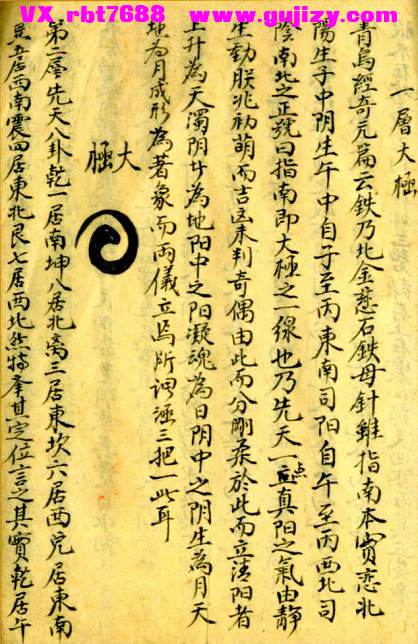 VX_rbt7688 www.gujizy.com
一層大極
青烏經奇元篇云鉄乃北金慈石鉄母針雖指南本實恋北
陽生子中阴生午中自子至丙東南司阳自午至丙西北司
陰南北之正號曰指南即大極之一線也乃先天一点真阳之氣由静
生動朕兆初萌而吉凶未判奇偶由此而分剛柔於此而立清阳者
上升為天濁阴廾為地阳中之阳凝魂為日阴中之阴生為月天
地為月成形為著象而两儀立焉所謂極三把一此耳
大極
第二層先天八卦乾一居南坤八居北离三居東坎六居西兑居東南
五居西南震四居東北艮七居西北然特拳其定位言之其實乾居午